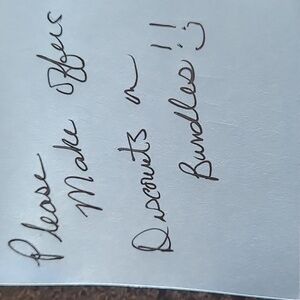 Please
Make offers
Discounts on
Bundles!! :)